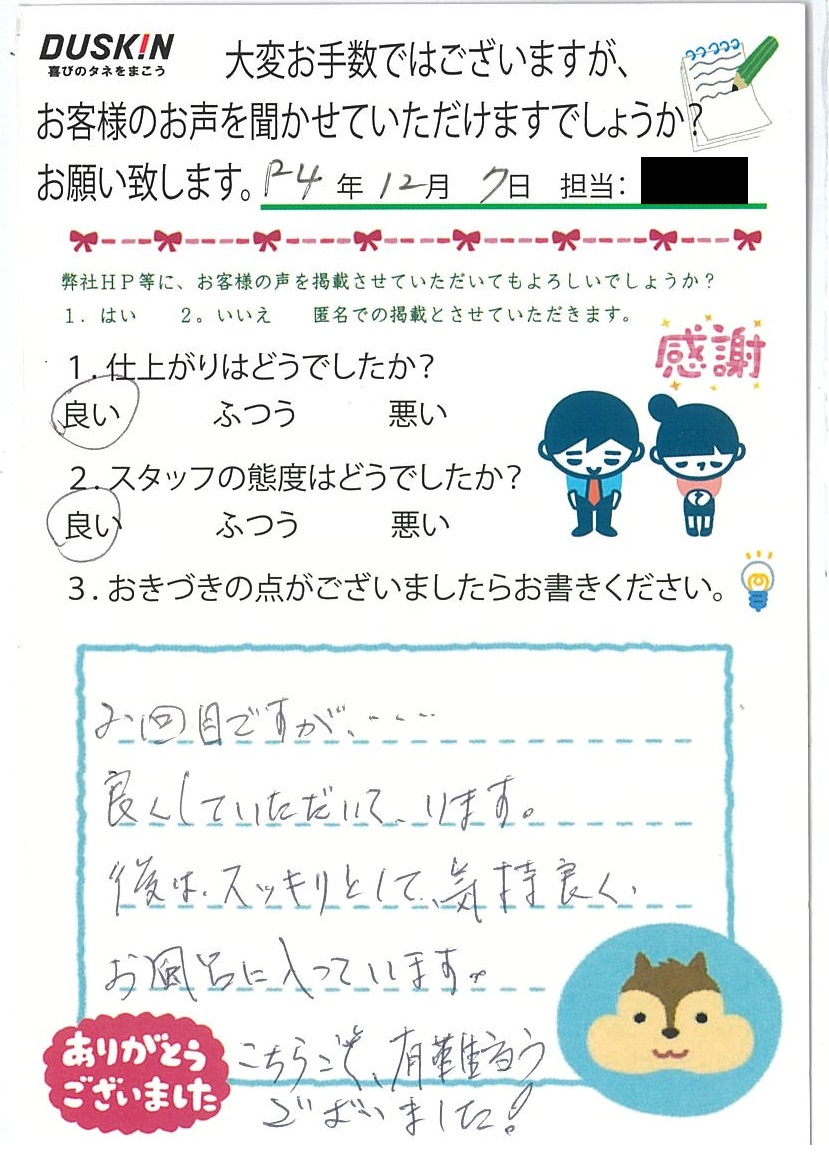 DUSKIN
喜びのタネをまこう
大変お手数ではございますが、
お客様のお声を聞かせていただけますでしょうか?
お願い致します。R4年12月7日 担当:
弊社HP等に、お客様の声を掲載させていただいてもよろしいでしょうか?
1. はい 2。いいえ 匿名での掲載とさせていただきます。
感謝
1.仕上がりはどうでしたか?
良い ふつう 悪い
2.スタッフの態度はどうでしたか?
良い ふつう 悪い
3.おきづきの点がございましたらお書きください。
回目ですが、----
良くしていただいて、います。
後は、スッキリとして、気持良く、
お風呂に入っています。
ありがとう
ございました
こちらこそ、有難う
ございました!